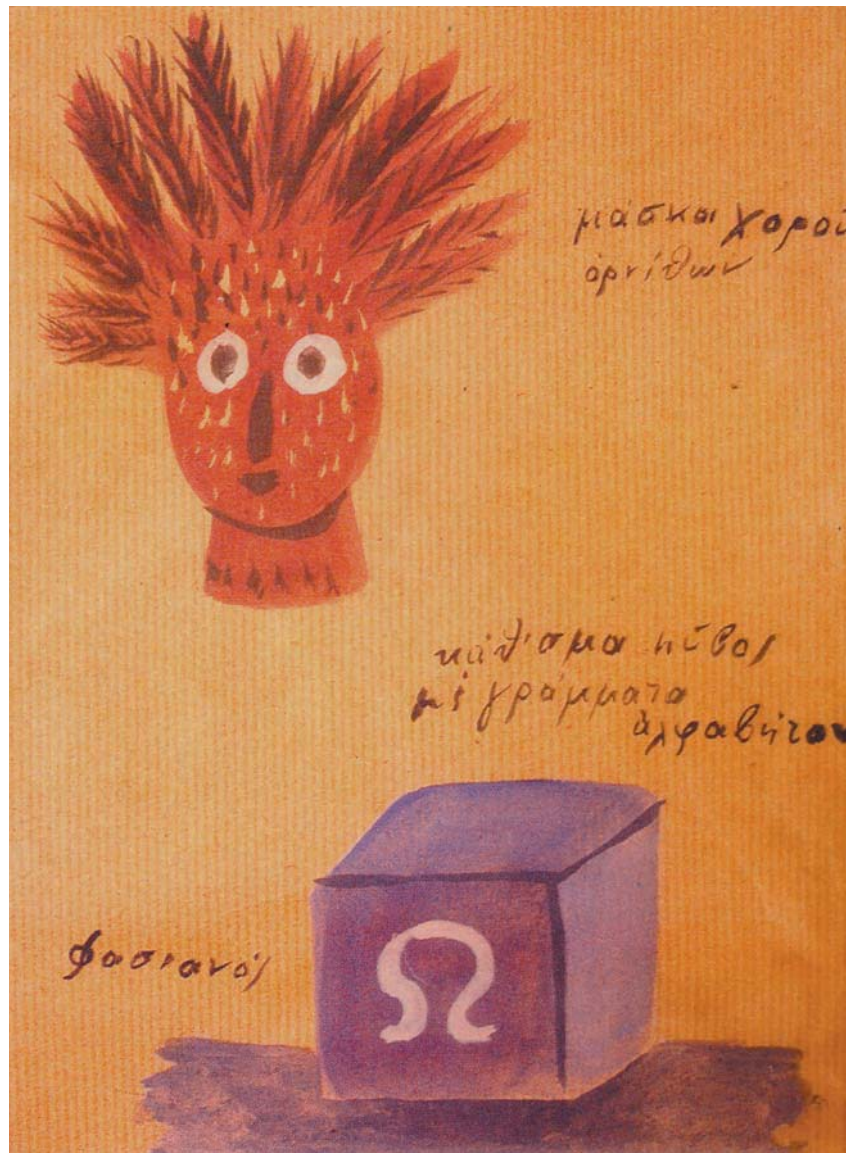 μάσκα χορού
ὀρνίθων
κάθισμα κύβος
μὲ γράμματα
ἀλφαβήτου
Ω
φασιανός